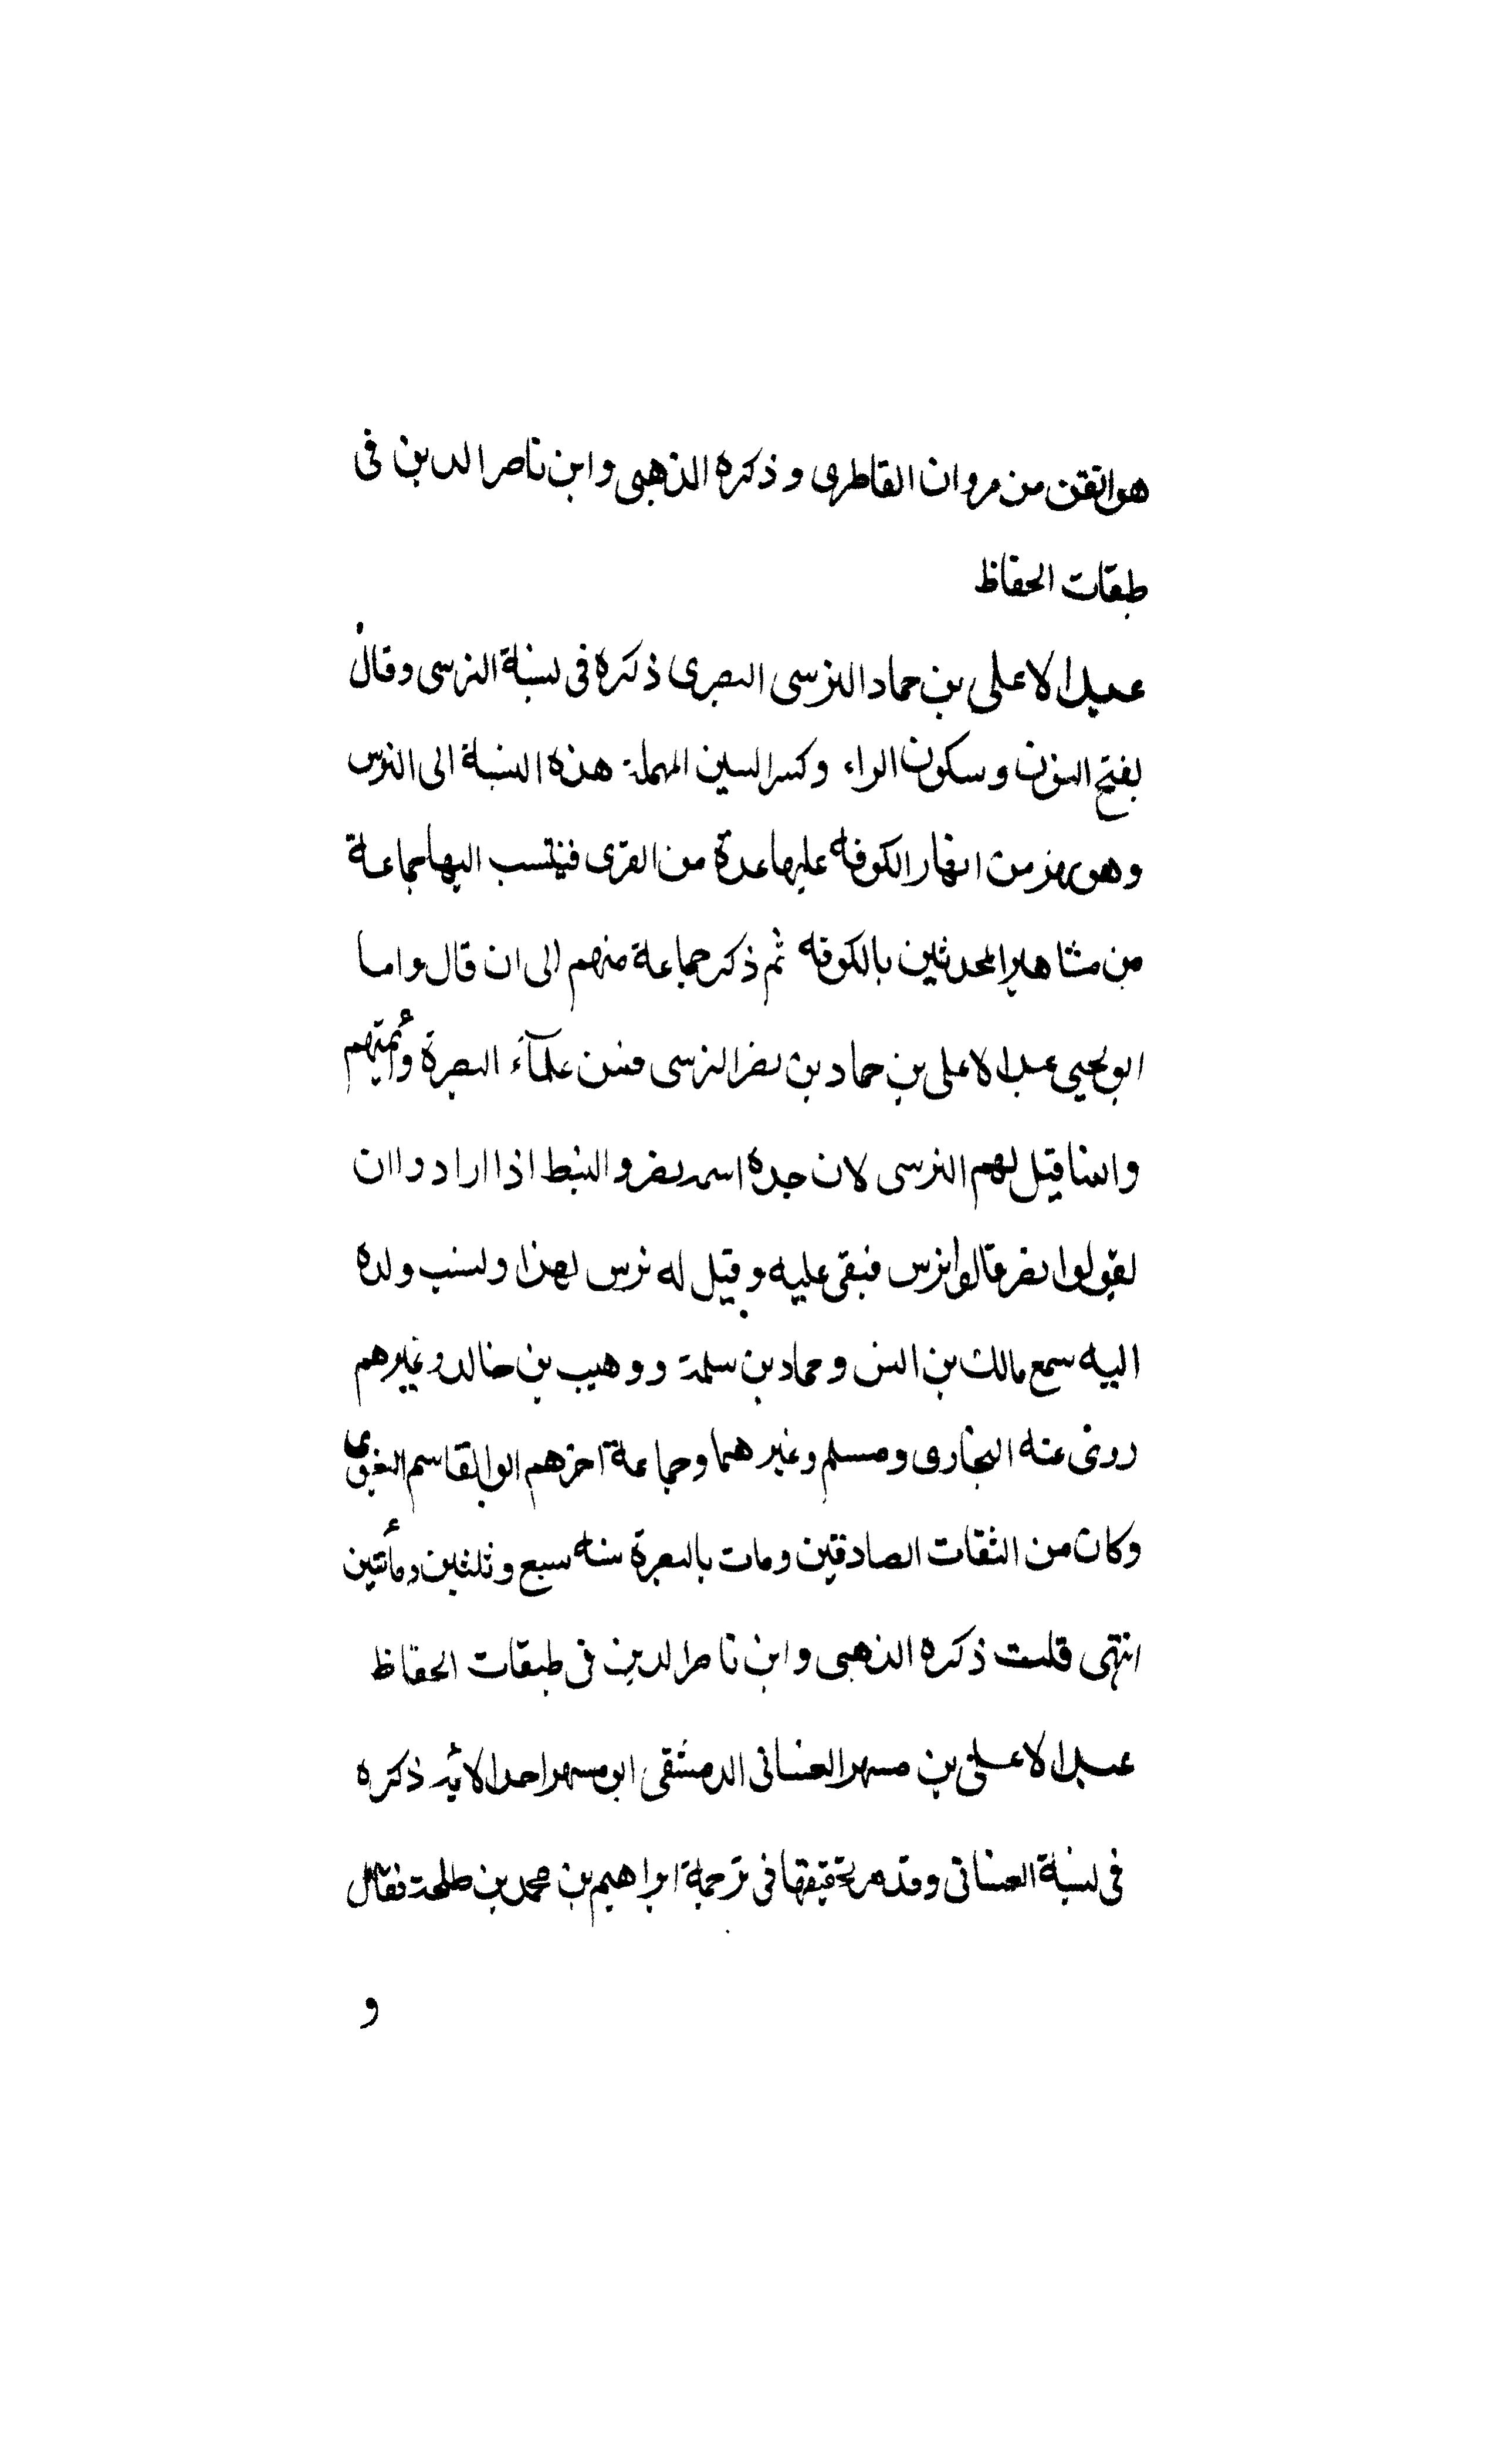 هو اتقن من مروان القاطرى و ذكره الذهبى وابن ناصر الدين فى
طبقات الحفاظ
عبد الاعلى بن حماد النرسى البصرى ذكره فى نسبة النرسى وقال
بفتح النون وسكون الراء وكسر السين المهملة هذه النسبة الى النرس
وهو نهر من انهار الكوفة عليها عدة من القرى فينتسب اليها جماعة
من مشاهير المحدثين بالكوفة ثم ذكر جماعة منهم الى ان قال واما
ابو يحيى عبد الاعلى بن حماد بن نصر النرسى فمن علمآء البصرة وأئمتهم
وانما قيل لهم النرسى لان جده اسمه نصر و النبط اذا ارادوا ان
يقولوا نصر قالوا نرس فبقى عليه و قيل له نرس لهذا ونسب ولده
اليه سمع مالك بن انس وحماد بن سلمة ووهيب بن خالد وغيرهم
روى عنه البخارى ومسلم وغيرهما وجماعة آخرهم ابو القاسم البغوى
وكان من الثقات الصادقين ومات بالبصرة سنة سبع وثلثين ومأتين
انتهى قلت ذكره الذهبى وابن ناصر الدين فى طبقات الحفاظ
عبد الاعلى بن مسهر الغسانى الدمشقى ابو مسهر احد الائمة ذكره
فى نسبة الغسانى وقد مر تحقيقها فى ترجمة ابراهيم بن محمد بن طلحة فقال
و